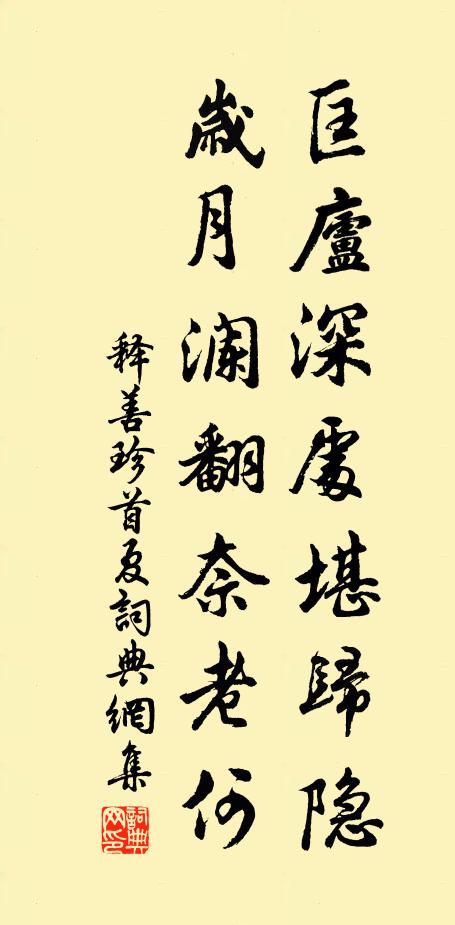 匡廬深處堪歸隐
歲月澜翻奈老何
释善珍首夏詞典網集
詞典网印